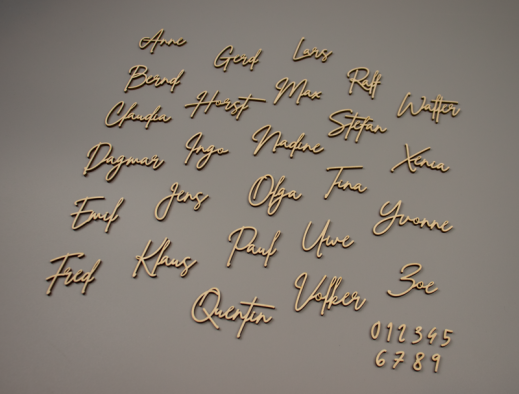 Anne Gerd Lars
Bernd Max Ralf
Claudia Horst Stefan Walter
Dagmar Ingo Nadine Xenia
Emil Jens Olga Tina Yvonne
Fred Klaus Paul Uwe
Quentin Volker Zoe
012345
6789